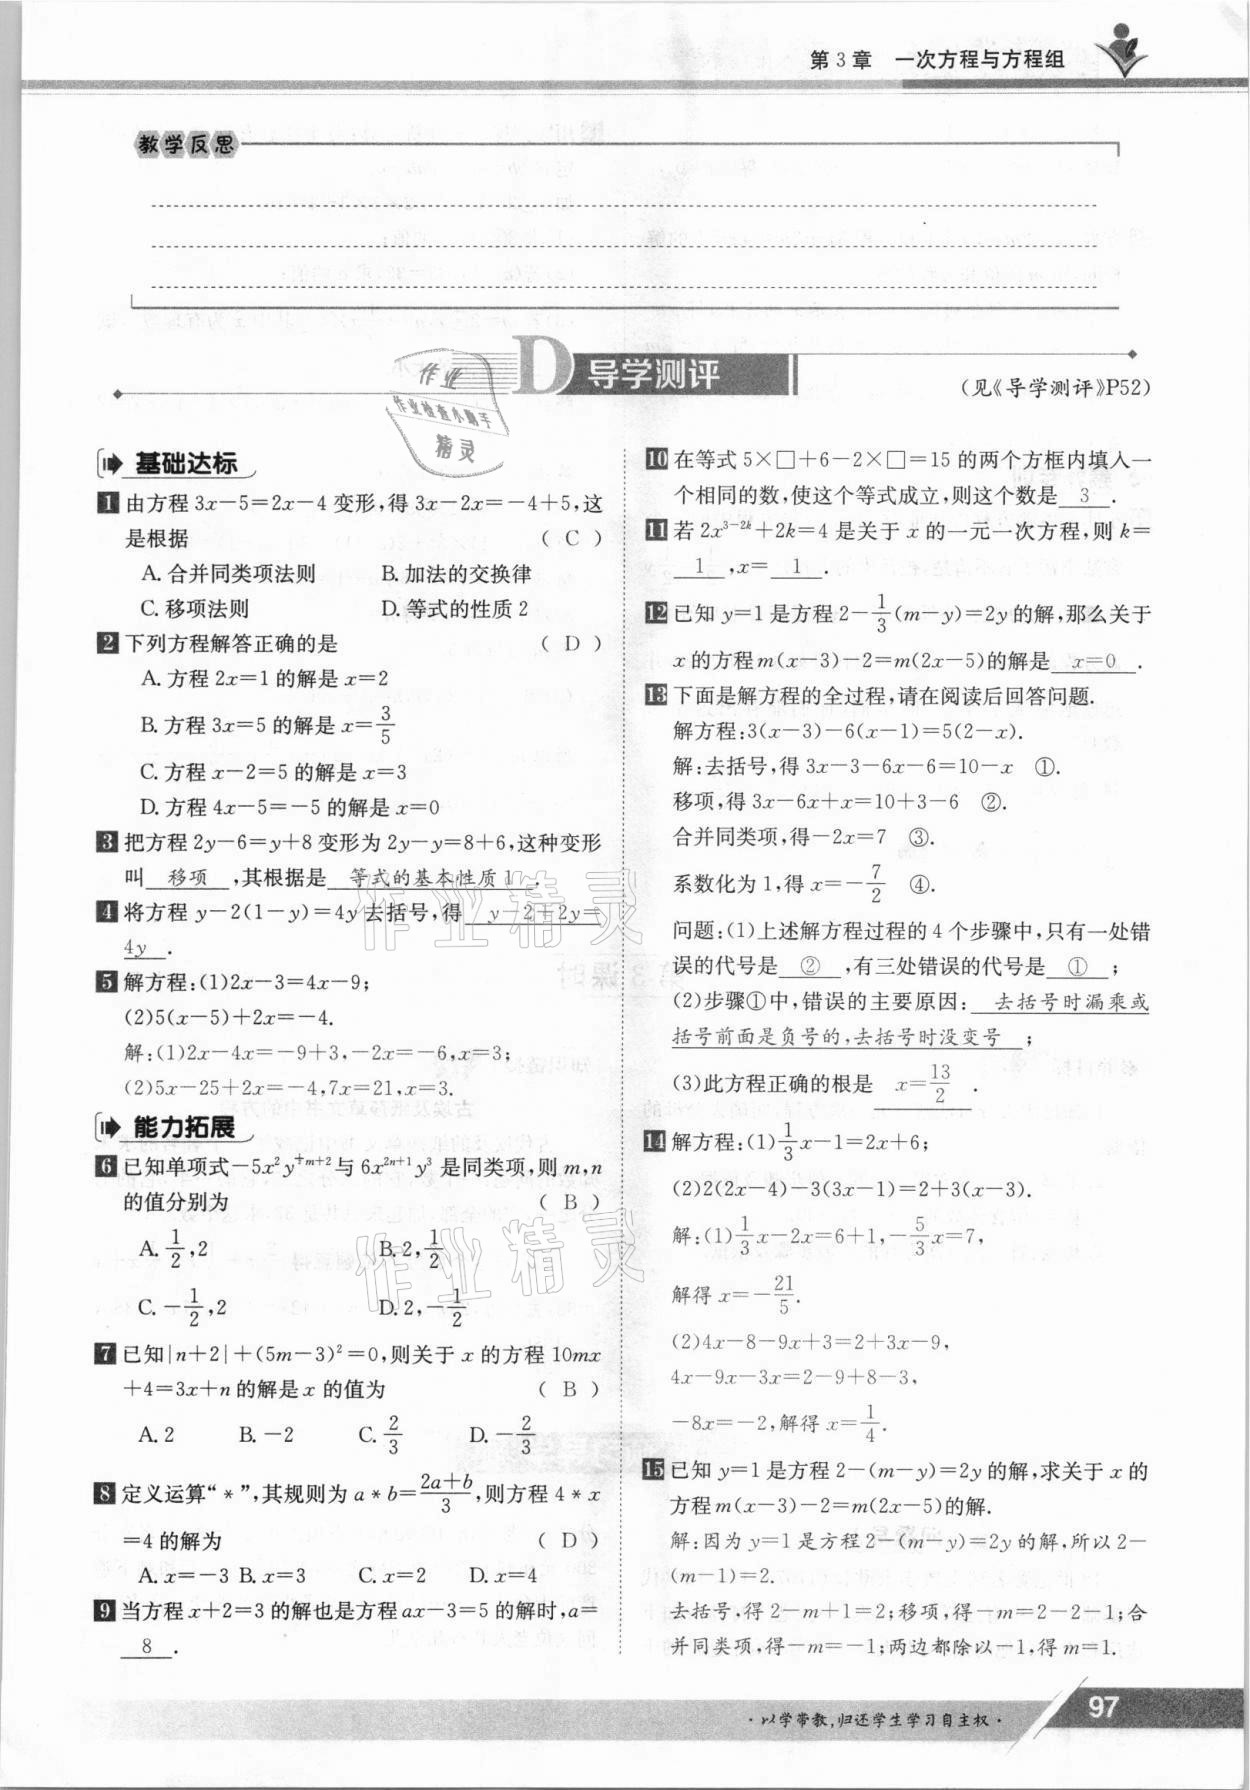 第3章 一次方程与方程组
教学反思
D 导学测评
(见《导学测评》P52)
作业
作业检查小助手
精灵
基础达标
1 由方程 3x-5=2x-4 变形,得 3x-2x=-4+5,这
是根据 ( C )
A. 合并同类项法则 B. 加法的交换律
C. 移项法则 D. 等式的性质 2
2 下列方程解答正确的是 ( D )
A. 方程 2x=1 的解是 x=2
B. 方程 3x=5 的解是 x=3/5
C. 方程 x-2=5 的解是 x=3
D. 方程 4x-5=-5 的解是 x=0
3 把方程 2y-6=y+8 变形为 2y-y=8+6,这种变形
叫 移项 ,其根据是 等式的基本性质 1 .
4 将方程 y-2(1-y)=4y 去括号,得 y-2+2y=
4y .
5 解方程:(1)2x-3=4x-9;
(2)5(x-5)+2x=-4.
解:(1)2x-4x=-9+3,-2x=-6,x=3;
(2)5x-25+2x=-4,7x=21,x=3.
能力拓展
6 已知单项式-5x²y⁺ᵐ⁺²与 6x²ⁿ⁺¹y³ 是同类项,则 m,n
的值分别为 ( B )
A. 1/2,2 B. 2,1/2
C. -1/2,2 D. 2,-1/2
7 已知|n+2|+(5m-3)²=0,则关于 x 的方程 10mx
+4=3x+n 的解是 x 的值为 ( B )
A. 2 B. -2 C. 2/3 D. -2/3
8 定义运算“*”,其规则为 a*b=(2a+b)/3,则方程 4*x
=4 的解为 ( D )
A. x=-3 B. x=3 C. x=2 D. x=4
9 当方程 x+2=3 的解也是方程 ax-3=5 的解时,a=
8 .
10 在等式 5×□+6-2×□=15 的两个方框内填入一
个相同的数,使这个等式成立,则这个数是 3 .
11 若 2x³⁻²ᵏ+2k=4 是关于 x 的一元一次方程,则 k=
1 ,x= 1 .
12 已知 y=1 是方程 2-1/3(m-y)=2y 的解,那么关于
x 的方程 m(x-3)-2=m(2x-5)的解是 x=0 .
13 下面是解方程的全过程,请在阅读后回答问题.
解方程:3(x-3)-6(x-1)=5(2-x).
解:去括号,得 3x-3-6x-6=10-x ①.
移项,得 3x-6x+x=10+3-6 ②.
合并同类项,得-2x=7 ③.
系数化为 1,得 x=-7/2 ④.
问题:(1)上述解方程过程的 4 个步骤中,只有一处错
误的代号是 ② ,有三处错误的代号是 ① ;
(2)步骤①中,错误的主要原因: 去括号时漏乘或
括号前面是负号的,去括号时没变号 ;
(3)此方程正确的根是 x=13/2 .
14 解方程:(1)1/3x-1=2x+6;
(2)2(2x-4)-3(3x-1)=2+3(x-3).
解:(1)1/3x-2x=6+1,-5/3x=7,
解得 x=-21/5.
(2)4x-8-9x+3=2+3x-9,
4x-9x-3x=2-9+8-3,
-8x=-2,解得 x=1/4.
15 已知 y=1 是方程 2-(m-y)=2y 的解,求关于 x 的
方程 m(x-3)-2=m(2x-5)的解.
解:因为 y=1 是方程 2-(m-y)=2y 的解,所以 2-
(m-1)=2.
去括号,得 2-m+1=2;移项,得-m=2-2-1;合
并同类项,得-m=-1;两边都除以-1,得 m=1.
·以学带教,归还学生学习自主权·
97
作业精灵
作业精灵